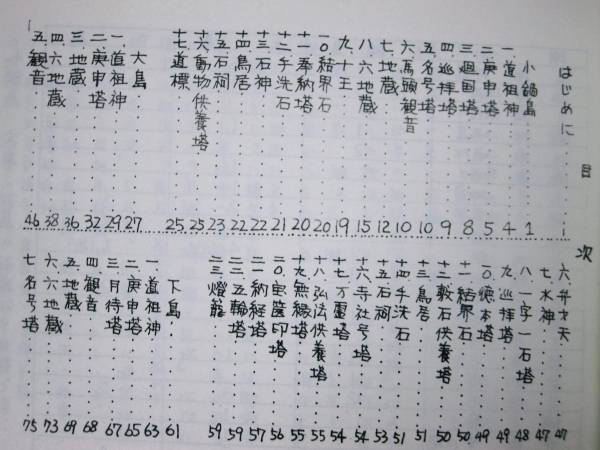 目次
はじめに 1
小鍋島 1
一.道祖神 4
二.庚申塔 5
三.廻国塔 8
四.巡拝塔 9
五.名号塔 10
六.馬頭観音 10
七.地蔵 12
八.六地蔵 15
九.十王 19
一〇.結界石 20
十一.奉納塔 20
十二.手洗石 21
十三.石神 22
十四.鳥居 22
十五.石祠 23
十六.動物供養塔 25
十七.道標 25
大島 27
一.道祖神 29
二.庚申塔 32
三.地蔵 36
四.六地蔵 38
五.観音 46
六.弁才天 47
七.水神 47
八.一字一石塔 48
九.巡拝塔 49
一〇.徳本塔 49
十一.結界石 50
十二.敷石供養塔 50
十三.鳥居 51
十四.手洗石 51
十五.石祠 53
十六.寺社号塔 54
十七.万霊塔 54
十八.弘法供養塔 55
十九.無縁塔 55
二〇.宝篋印塔 56
二一.納経塔 57
二二.五輪塔 59
二三.燈籠 59
下島 61
一.道祖神 63
二.庚申塔 65
三.月待塔 67
四.観音 68
五.地蔵 69
六.六地蔵 73
七.名号塔 75